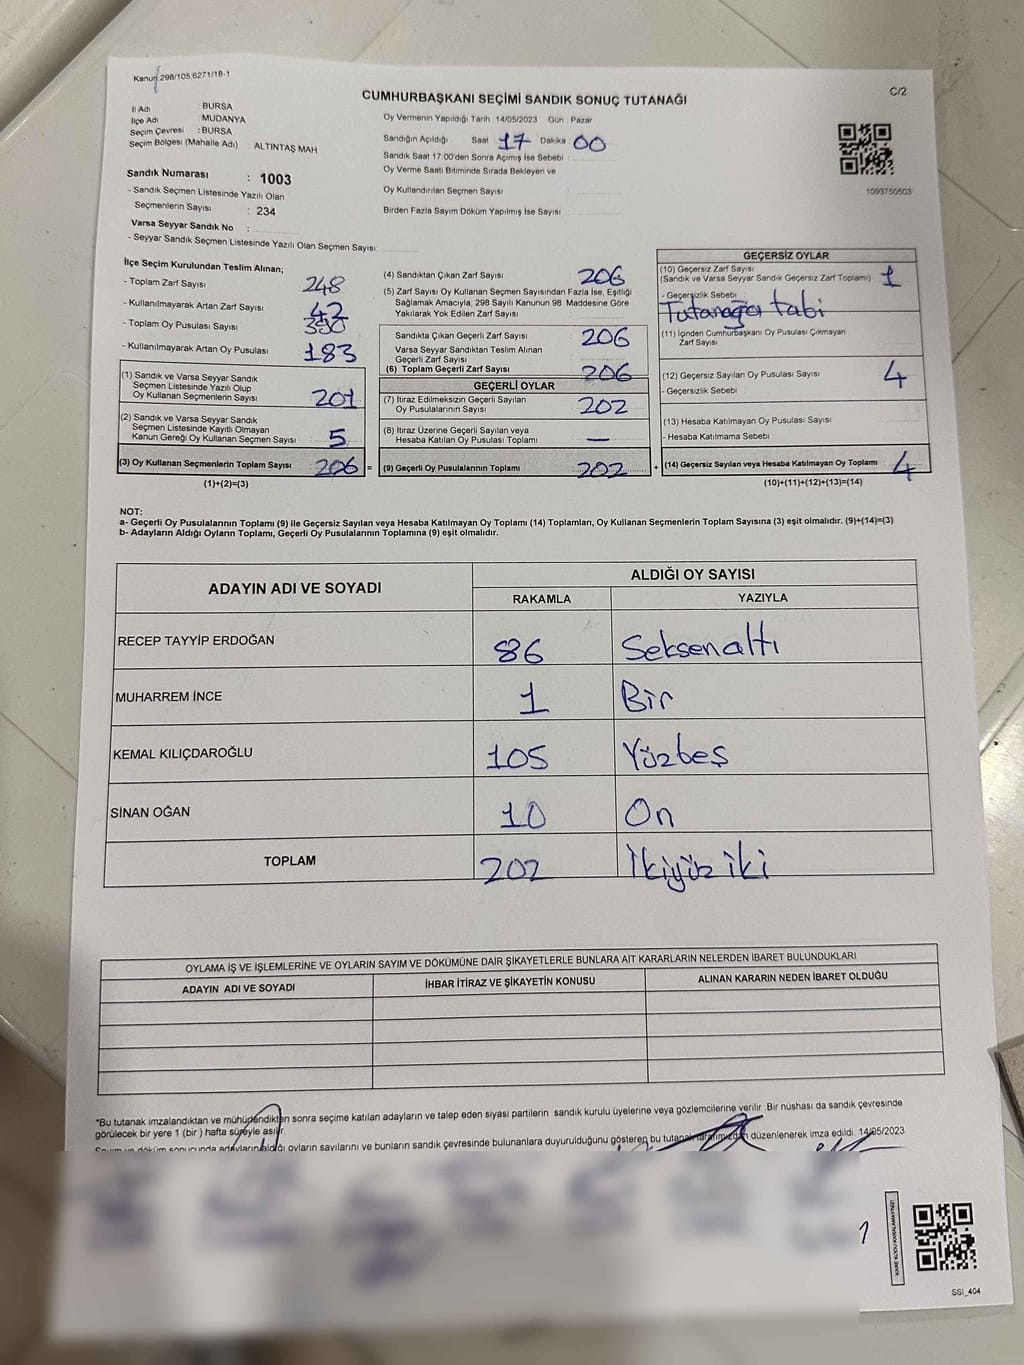 Kanun 298/105,6271/18-1
C/2
CUMHURBAŞKANI SEÇİMİ SANDIK SONUÇ TUTANAĞI
İl Adı : BURSA
İlçe Adı : MUDANYA
Seçim Çevresi : BURSA
Seçim Bölgesi (Mahalle Adı) : ALTINTAŞ MAH.
Sandık Numarası : 1003
- Sandık Seçmen Listesinde Yazılı Olan
Seçmenlerin Sayısı : 234
Varsa Seyyar Sandık No :
- Seyyar Sandık Seçmen Listesinde Yazılı Olan Seçmen Sayısı:
Oy Vermenin Yapıldığı Tarih 14/05/2023 Gün : Pazar
Sandığın Açıldığı Saat 17 Dakika 00
Sandık Saat 17:00'den Sonra Açımış İse Sebebi :
Oy Verme Saati Bitiminde Sırada Bekleyen ve
Oy Kullandırılan Seçmen Sayısı
Birden Fazla Sayım Döküm Yapılmış İse Sayısı
1093750503
İlçe Seçim Kurulundan Teslim Alınan;
- Toplam Zarf Sayısı 248
- Kullanılmayarak Artan Zarf Sayısı 42
- Toplam Oy Pusulası Sayısı
- Kullanılmayarak Artan Oy Pusulası 183
(1) Sandık ve Varsa Seyyar Sandık
Seçmen Listesinde Yazılı Olup
Oy Kullanan Seçmenlerin Sayısı 201
(2) Sandık ve Varsa Seyyar Sandık
Seçmen Listesinde Kayıtlı Olmayan
Kanun Gereği Oy Kullanan Seçmen Sayısı 5
(3) Oy Kullanan Seçmenlerin Toplam Sayısı 206 =
(1)+(2)=(3)
(4) Sandıktan Çıkan Zarf Sayısı 206
(5) Zarf Sayısı Oy Kullanan Seçmen Sayısından Fazla İse, Eşitliği
Sağlamak Amacıyla, 298 Sayılı Kanunun 98. Maddesine Göre
Yakılarak Yok Edilen Zarf Sayısı
Sandıkta Çıkan Geçerli Zarf Sayısı 206
Varsa Seyyar Sandıktan Teslim Alınan
Geçerli Zarf Sayısı
(6) Toplam Geçerli Zarf Sayısı 206
GEÇERLİ OYLAR
(7) İtiraz Edilmeksizin Geçerli Sayılan
Oy Pusulalarının Sayısı 202
(8) İtiraz Üzerine Geçerli Sayılan veya
Hesaba Katılan Oy Pusulası Toplamı —
(9) Geçerli Oy Pusulalarının Toplamı 202 +
GEÇERSİZ OYLAR
(10) Geçersiz Zarf Sayısı
(Sandık ve Varsa Seyyar Sandık Geçersiz Zarf Toplamı) 1
- Geçersizlik Sebebi
Tutanağa tabi
(11) İçinden Cumhurbaşkanı Oy Pusulası Çıkmayan
Zarf Sayısı
(12) Geçersiz Sayılan Oy Pusulası Sayısı 4
- Geçersizlik Sebebi
(13) Hesaba Katılmayan Oy Pusulası Sayısı
- Hesaba Katılmama Sebebi
(14) Geçersiz Sayılan veya Hesaba Katılmayan Oy Toplamı 4
(10)+(11)+(12)+(13)=(14)
NOT:
a- Geçerli Oy Pusulalarının Toplamı (9) ile Geçersiz Sayılan veya Hesaba Katılmayan Oy Toplamı (14) Toplamları, Oy Kullanan Seçmenlerin Toplam Sayısına (3) eşit olmalıdır. (9)+(14)=(3)
b- Adayların Aldığı Oyların Toplamı, Geçerli Oy Pusulalarının Toplamına (9) eşit olmalıdır.
ADAYIN ADI VE SOYADI ALDIĞI OY SAYISI
RAKAMLA YAZIYLA
RECEP TAYYİP ERDOĞAN 86 Seksenaltı
MUHARREM İNCE 1 Bir
KEMAL KILIÇDAROĞLU 105 Yüzbeş
SİNAN OĞAN 10 On
TOPLAM 202 İkiyüz iki
OYLAMA İŞ VE İŞLEMLERİNE VE OYLARIN SAYIM VE DÖKÜMÜNE DAİR ŞİKAYETLERLE BUNLARA AİT KARARLARIN NELERDEN İBARET BULUNDUKLARI
ADAYIN ADI VE SOYADI İHBAR İTİRAZ VE ŞİKAYETİN KONUSU ALINAN KARARIN NEDEN İBARET OLDUĞU
*Bu tutanak imzalandıktan ve mühürlendikten sonra seçime katılan adayların ve talep eden siyasi partilerin sandık kurulu üyelerine veya gözlemcilerine verilir. Bir nüshası da sandık çevresinde
görülecek bir yere 1 (bir) hafta süreyle asılır.
Sayım ve döküm sonucunda adayların aldığı oyların sayılarını ve bunların sandık çevresinde bulunanlara duyurulduğunu gösteren bu tutanak tarafımızdan düzenlenerek imza edildi. 14/05/2023
KARE KODU KARALAMAYINIZ!
SSI_404